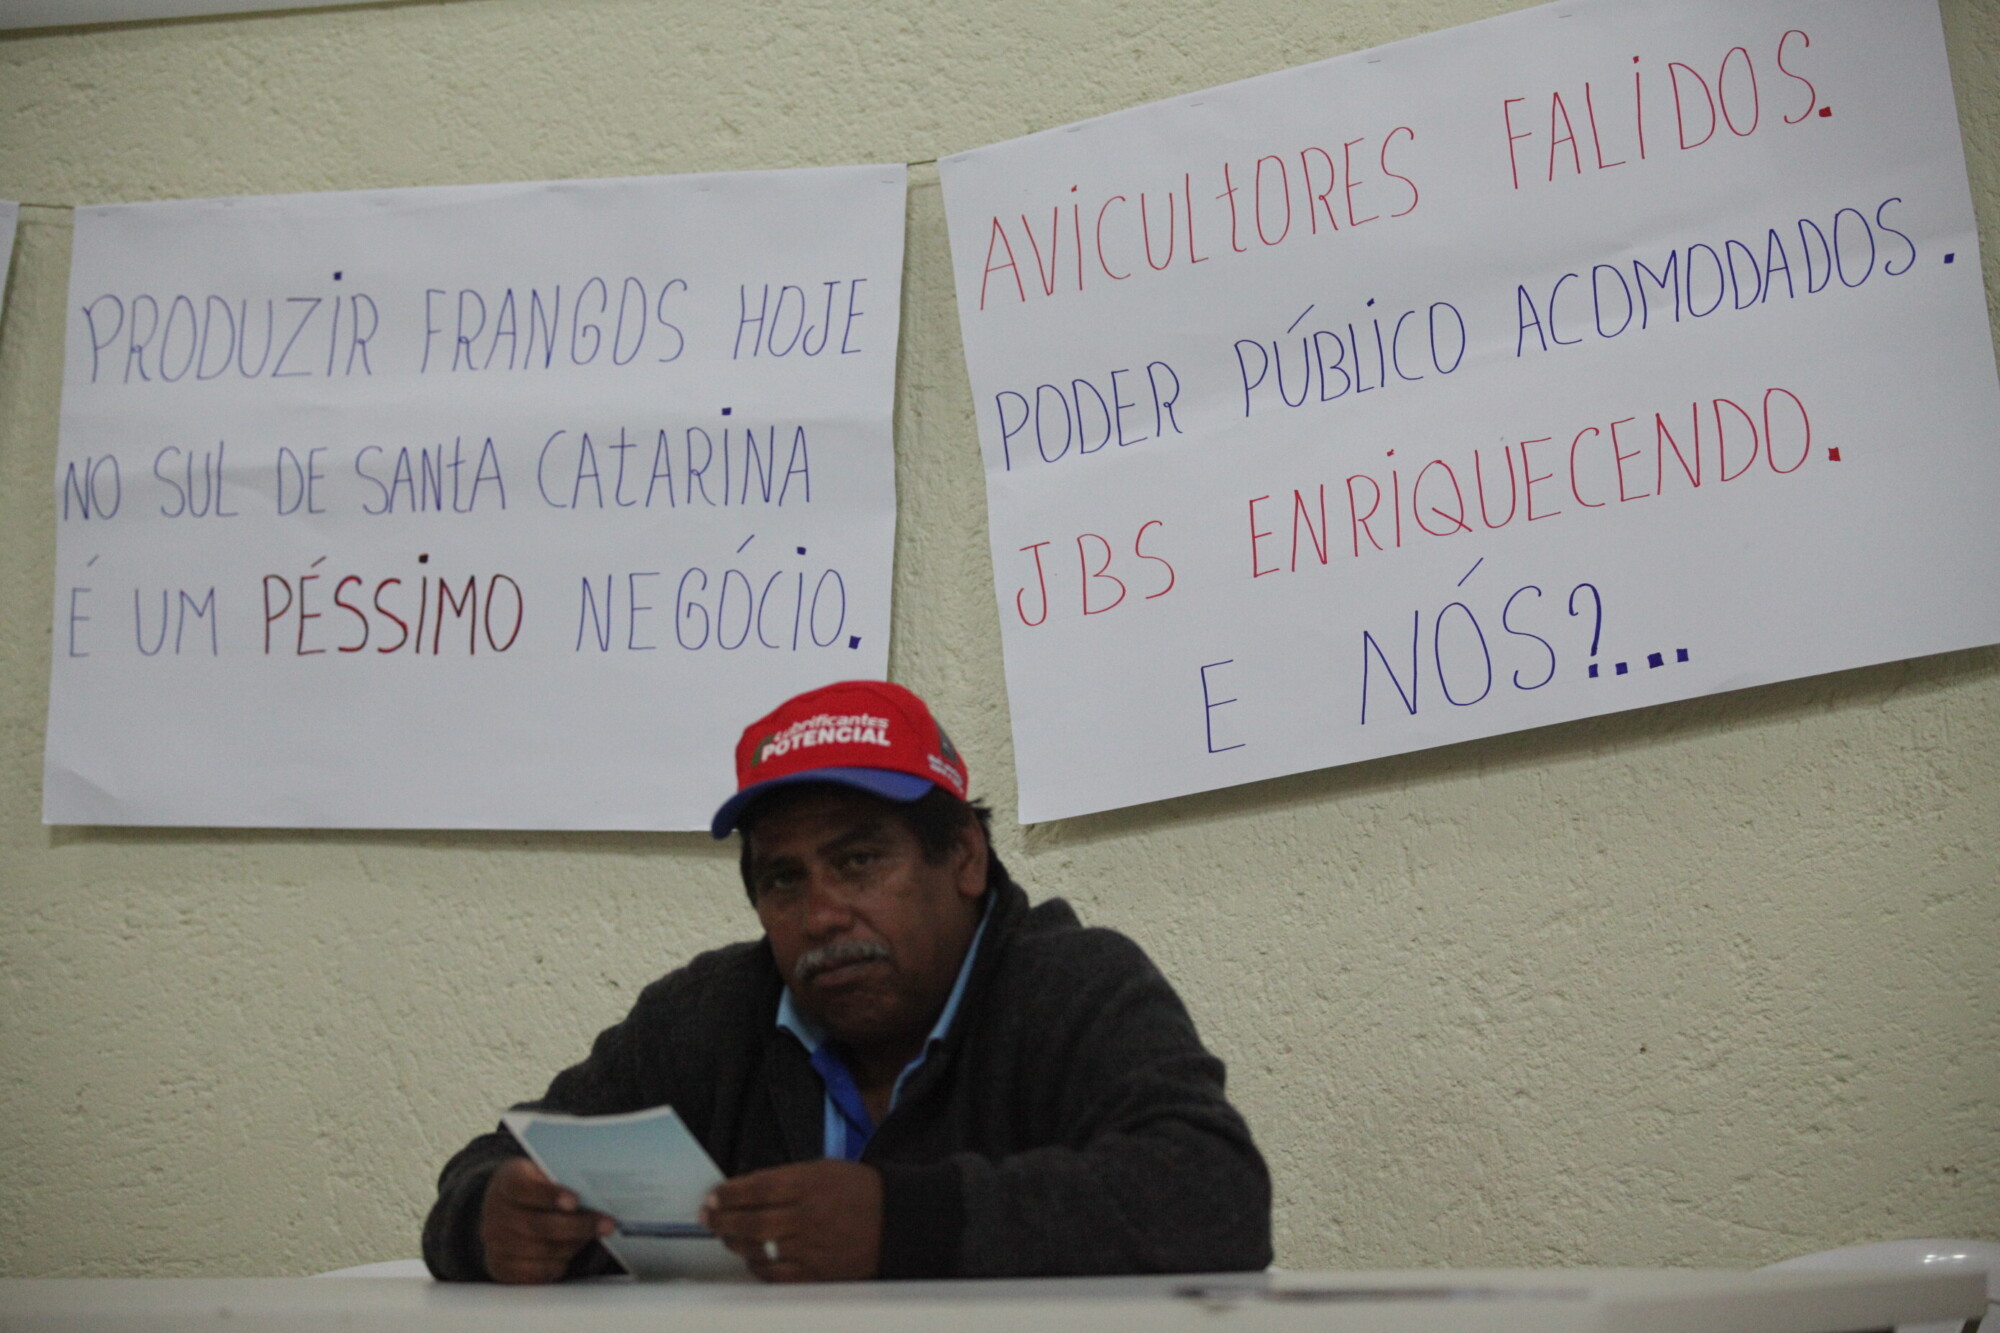 PRODUZIR FRANGOS HOJE
NO SUL DE SANTA CATARINA
É UM PÉSSIMO NEGÓCIO.
AVICULTORES FALIDOS.
PODER PÚBLICO ACOMODADOS.
JBS ENRIQUECENDO.
E NÓS?...
Lubrificantes
POTENCIAL